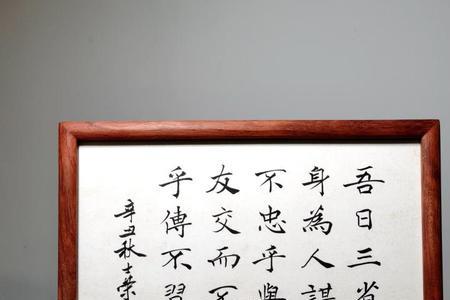 吾日三省
身為人謀
不忠乎與
友交而不
乎傳不習
辛丑秋士榮